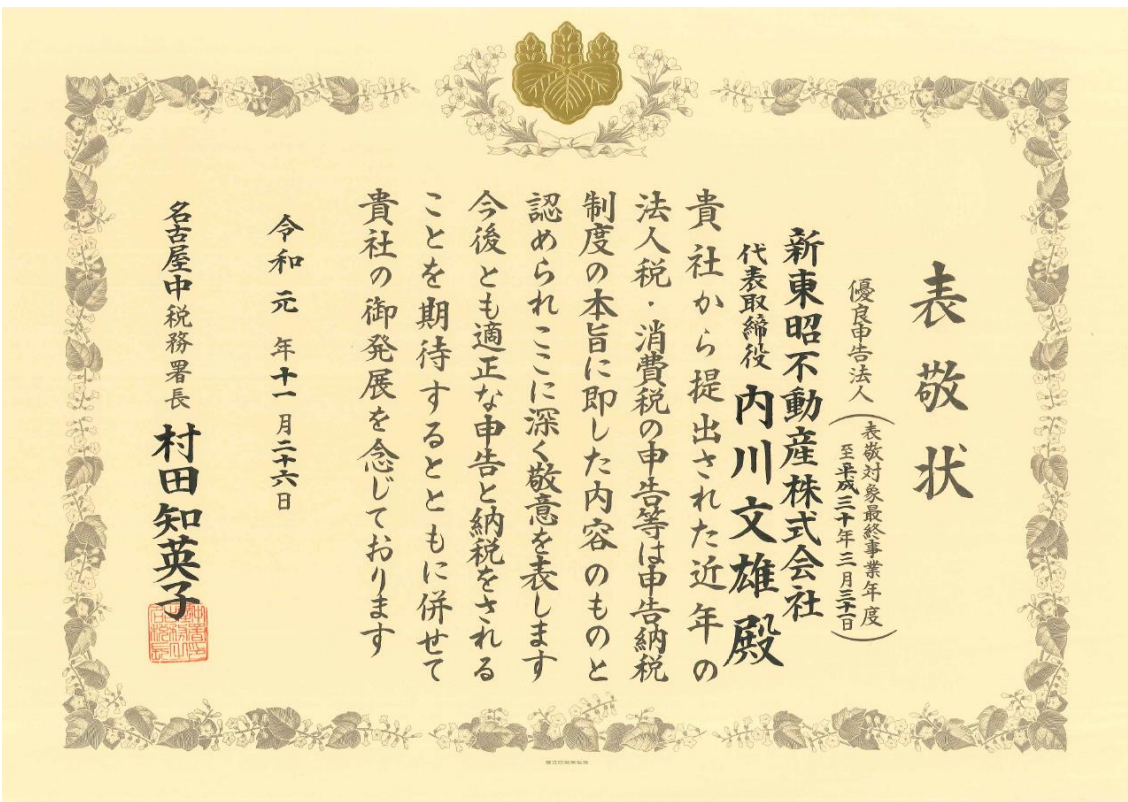 表敬状
優良申告法人
(表敬対象最終事業年度
至平成三十年三月三十一日)
新東昭不動産株式会社
代表取締役 内川文雄殿
貴社から提出された近年の
法人税・消費税の申告等は申告納税
制度の本旨に即した内容のものと
認められここに深く敬意を表します
今後とも適正な申告と納税をされる
ことを期待するとともに併せて
貴社の御発展を念じております
令和元年十一月二十六日
名古屋中税務署長 村田知英子